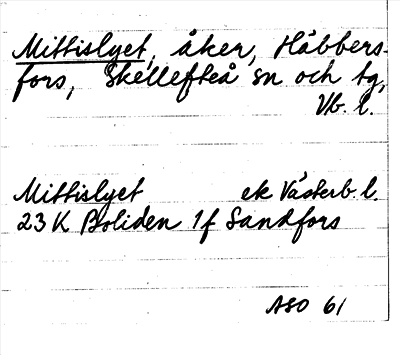 Mittislyet, åker, Håbbers-
fors, Skellefteå sn och tg,
Vb. l.
Mittislyet ek Västerb. l.
23 K Boliden 1f Sandfors
ASO 61